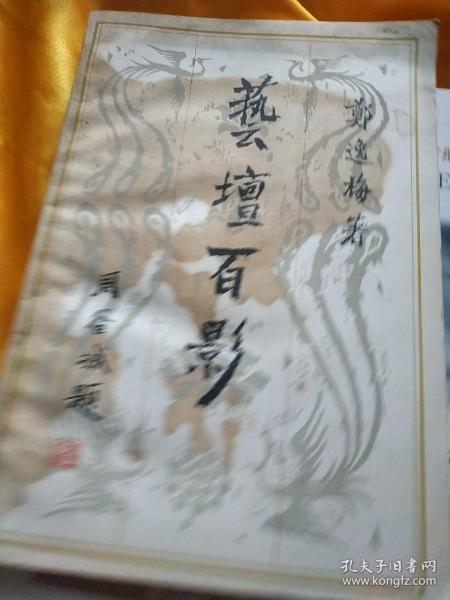 鄭逸梅著
藝壇百影
周退斌題
孔夫子旧书网
www.kongfz.com